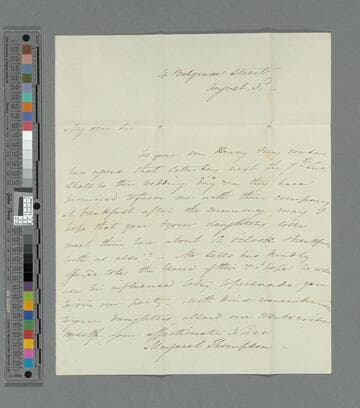 4 Belgrave Street
August 3d
My dear Sir
As your son Henry &
have agreed that Saturday next the 7th Inst
shall be their wedding day & as they have
promised to favor me with their company
at breakfast after the ceremony may I
hope that you & your daughters will
meet them here about 12 o'clock & breakfast
with us also? – Mr Sells has kindly
offered to be the bearer of this & I hope he will
use his influence
to join our party – with kind remembrances
to your daughters allow me to subscribe
myself your affectionate Niece
Margaret Thompson